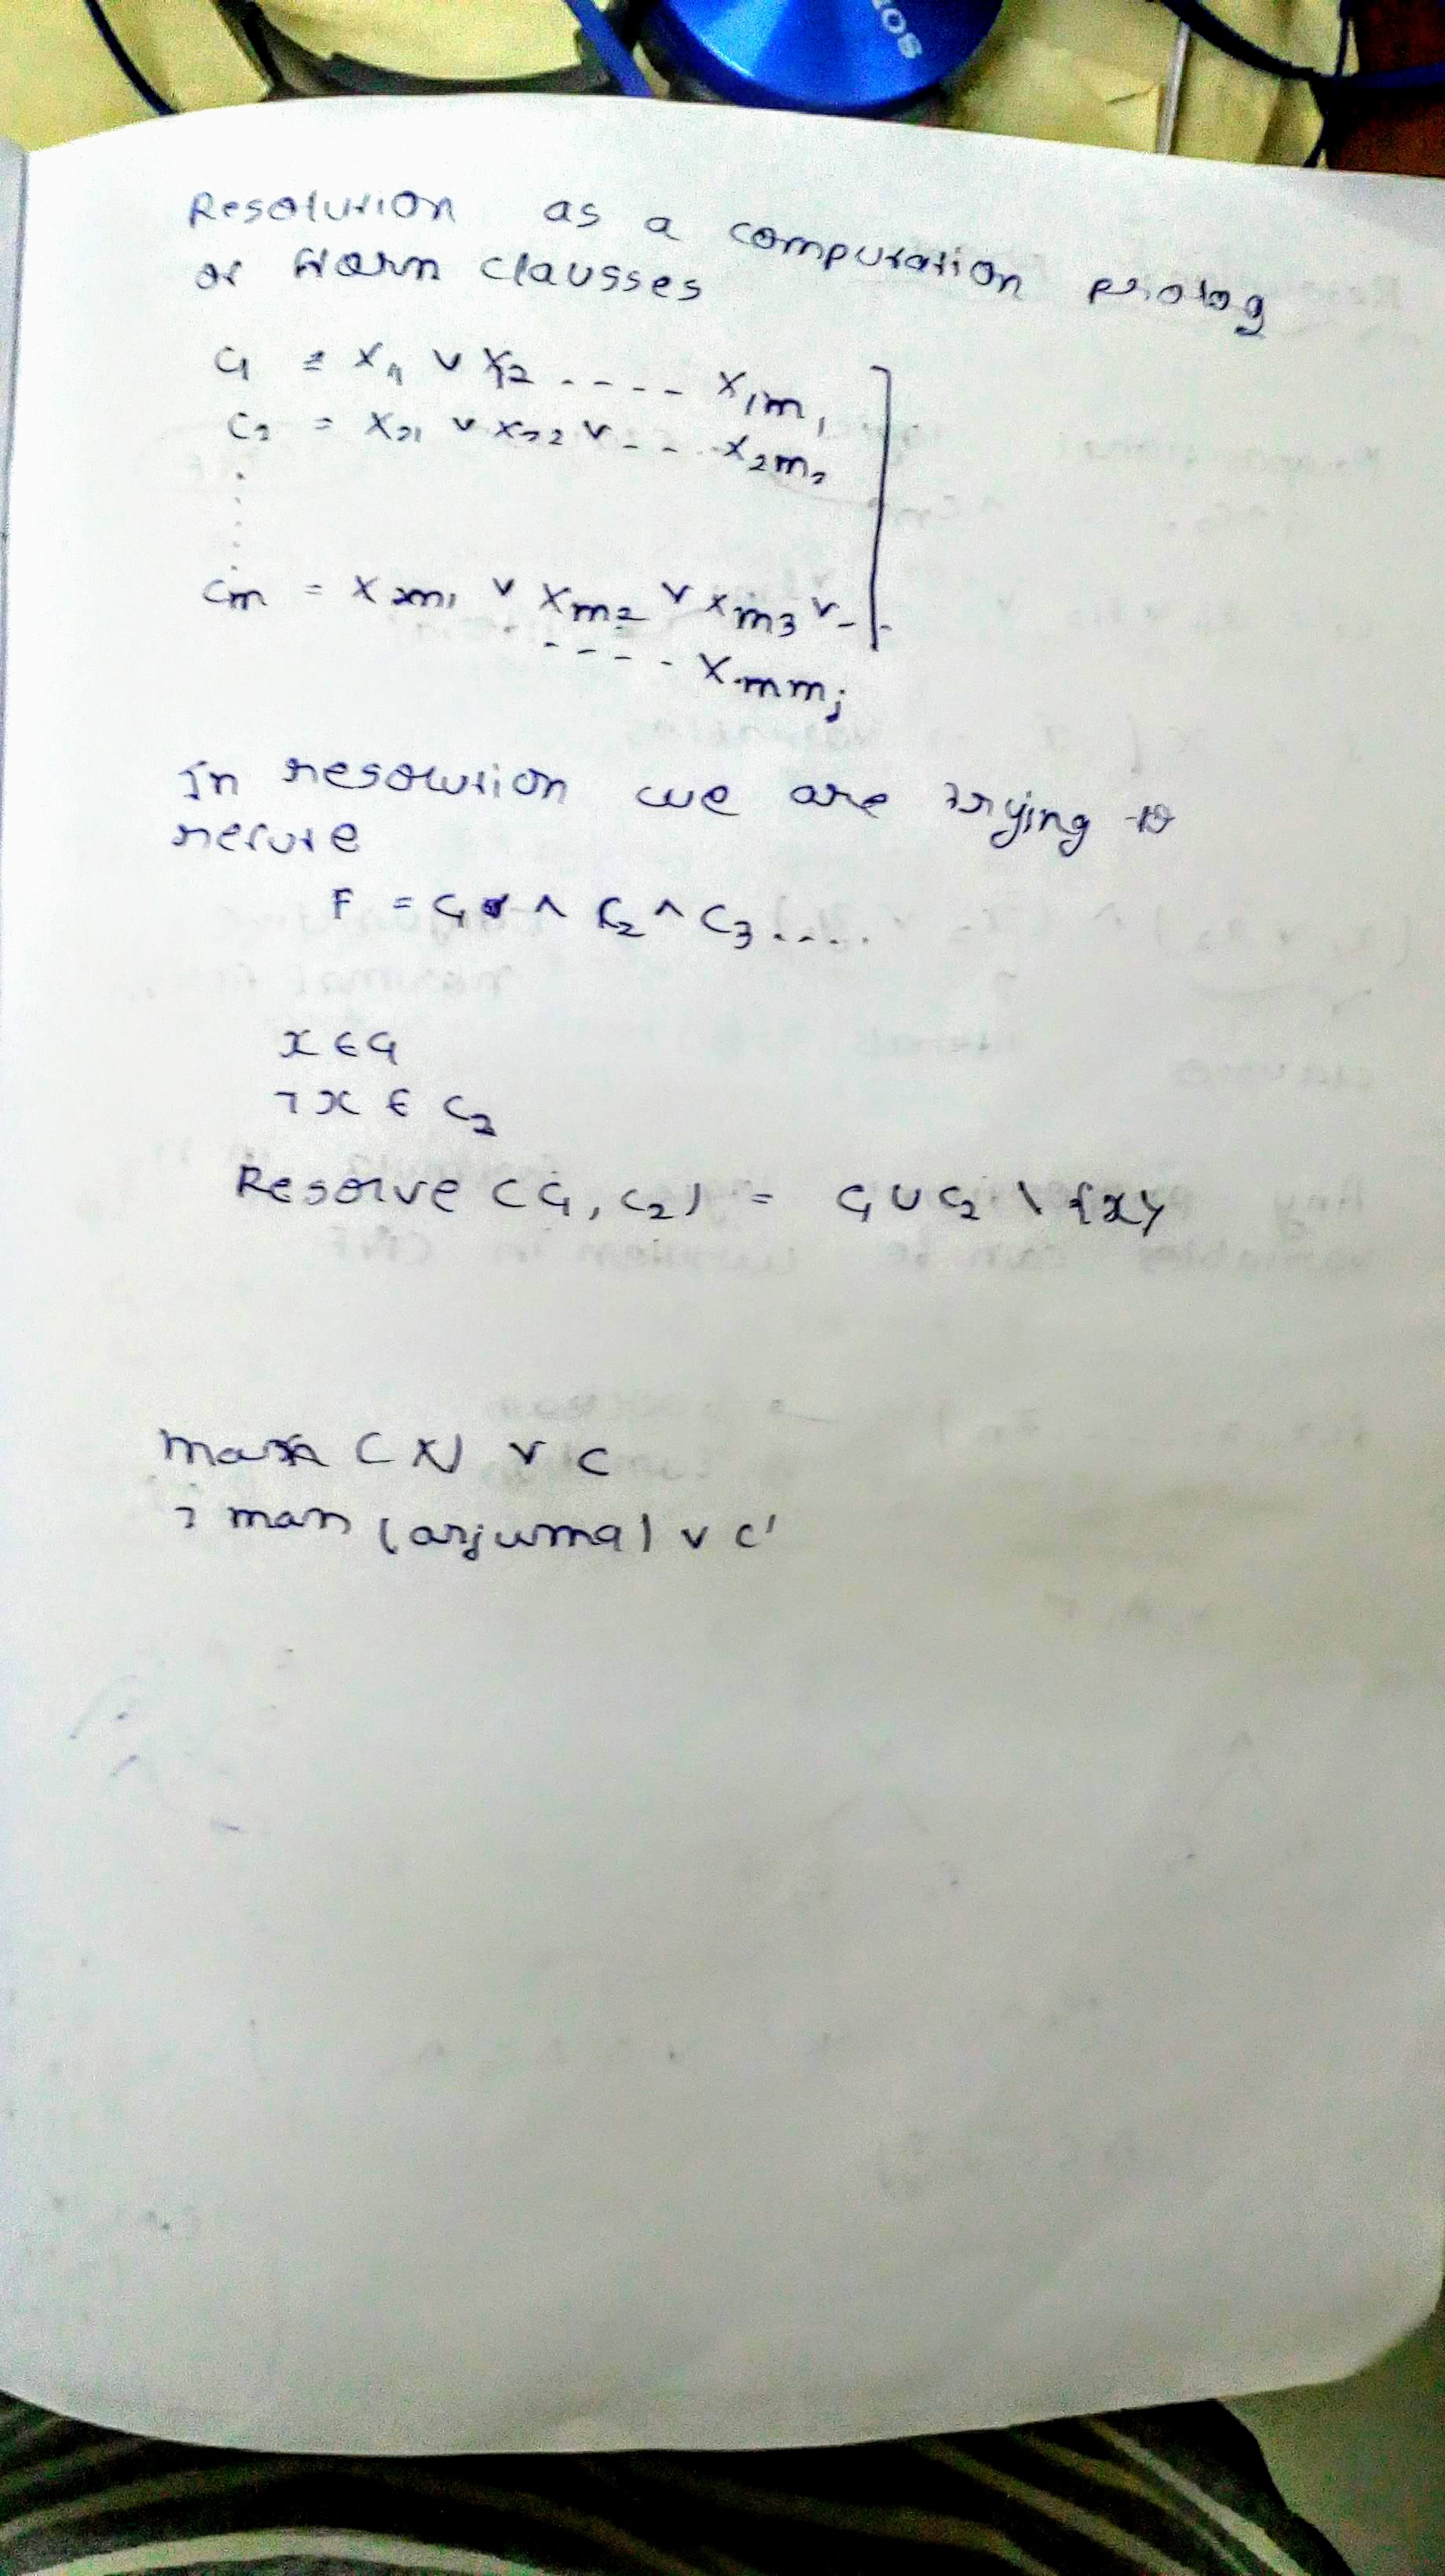 SONY
Resolution as a computation prolog
of Horn clausses
C1 = X11 ∨ X12 ..... X1m1
C2 = X21 ∨ X22 ∨ - - .. X2m2
Cm = Xm1 ∨ Xm2 ∨ Xm3 ∨ - -
- - - - . Xmmj
In resolution we are trying to
refute
F = C1 ∧ C2 ∧ C3 ....
x ∈ C1
¬x ∈ C2
Resolve (C1, C2) = C1 ∪ C2 \ {x}
man (X) ∨ C
¬ man (arjuna) ∨ C'